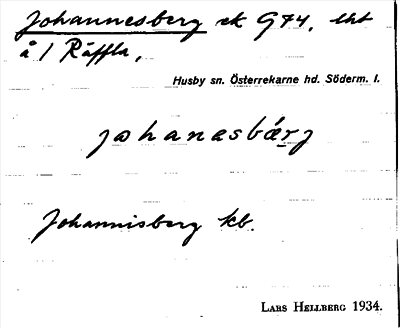 Johannesberg ek G74, lht
å 1 Räffla,
Husby sn. Österrekarne hd. Söderm. l.
johanasbærj
Johannisberg kb.
LARS HELLBERG 1934.